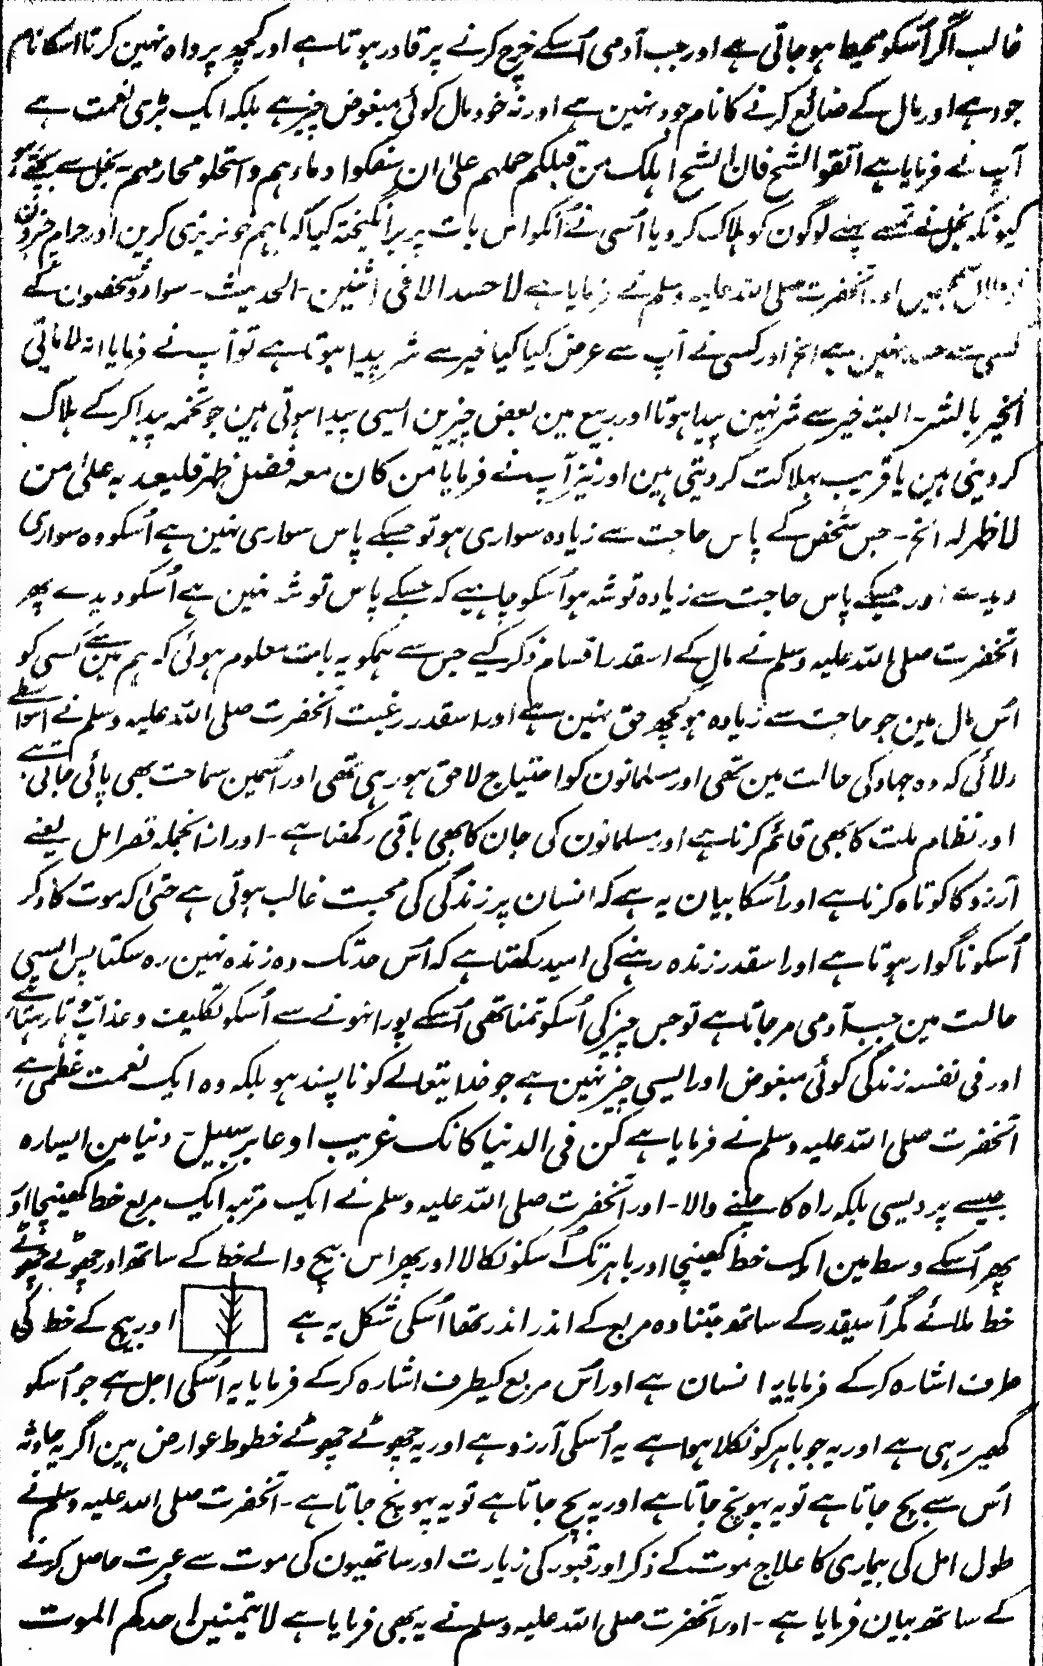 غالب آکر اُسکو محیط ہو جاتی ہے اور جب آدمی اُسکے خرچ کرنے پر قادر ہوتا ہے اور کچھ پرواہ نہین کرتا اسکا نام
جود ہے اور مال کے ضائع کرنے کا نام جود نہین ہے اور نہ خود مال کوئی مبغوض چیز ہے بلکہ ایک بڑی نعمت ہے
آپ نے فرمایا ہے اتقوا الشح فان الشح اہلک من قبلکم حملہم علیٰ ان سفکوا دماءہم واستحلو محارمہم۔ بخل سے بچتے رہو
کیونکہ بخل نے تمسے پہلے لوگون کو ہلاک کر دیا اُسی نے اُنکو اس بات پر برانگیختہ کیا کہ باہم خونریزی کرین اور حرام چیزون
کو حلال سمجھین اور آنحضرت صلی اللہ علیہ وسلم نے فرمایا ہے لا حسد الا فی اثنین۔ الحدیث۔ سوا دو شخصون کے
کسی سے حسد نہین ہے الخ اور کسی نے آپ سے عرض کیا کیا خیر سے شر پیدا ہوتا ہے تو آپ نے فرمایا انہ لا یاتی
الخیر بالشر۔ البتہ خیر سے شر نہین پیدا ہوتا اور ربیع مین بعض چیزین ایسی پیدا ہوتی ہین جو تخمہ پیدا کر کے ہلاک
کر دیتی ہین یا قریب بہلاکت کر دیتی ہین اور نیز آپ نے فرمایا من کان معہ فضل ظہر فلیعد بہ علیٰ من
لا ظہر لہ الخ۔ جس شخص کے پاس حاجت سے زیادہ سواری ہو تو جسکے پاس سواری نہین ہے اُسکو وہ سواری
دیدے اور جسکے پاس حاجت سے زیادہ توشہ ہو اُسکو چاہیے کہ جسکے پاس توشہ نہین ہے اُسکو دیدے پھر
آنحضرت صلی اللہ علیہ وسلم نے مال کے اسقدر اقسام ذکر کیے جس سے ہمکو یہ بات معلوم ہوئی کہ ہم مین سے کسی کو
اُس مال مین جو حاجت سے زیادہ ہو کچھ حق نہین ہے اور اسقدر رغبت آنحضرت صلی اللہ علیہ وسلم نے اسواسطے
دلائی کہ وہ جہاد کی حالت مین تھی اور مسلمانون کو احتیاج لاحق ہو رہی تھی اور اُسمین سماحت بھی پائی جاتی ہے
اور نظام ملت کا بھی قائم کرنا ہے اور مسلمانون کی جان کا بھی باقی رکھنا ہے۔ اور ازانجملہ قصر امل یعنے
آرزو کا کوتاہ کرنا ہے اور اُسکا بیان یہ ہے کہ انسان پر زندگی کی محبت غالب ہوتی ہے حتیٰ کہ موت کا ذکر
اُسکو ناگوار ہوتا ہے اور اسقدر زندہ رہنے کی امید رکھتا ہے کہ اُس حد تک وہ زندہ نہین رہ سکتا پس ایسی
حالت مین جب آدمی مر جاتا ہے تو جس چیز کی اُسکو تمنا تھی اُسکے پورا نہونے سے اُسکو تکلیف و عذاب ہوتا رہتا ہے
اور فی نفسہ زندگی کوئی مبغوض اور ایسی چیز نہین ہے جو خدا یتعالے کو ناپسند ہو بلکہ وہ ایک نعمت عظمی ہے
آنحضرت صلی اللہ علیہ وسلم نے فرمایا ہے کن فی الدنیا کانک غریب او عابر سبیل۔ دنیا مین ایسا رہ
جیسے پردیسی بلکہ راہ کا چلنے والا۔ اور آنحضرت صلی اللہ علیہ وسلم نے ایک مرتبہ ایک مربع خط کھینچا اور
پھر اُسکے وسط مین ایک خط کھینچا اور باہر تک اُسکو نکالا اور پھر اس بیچ والے خط کے ساتھ اور چھوٹے چھوٹے
خط ملائے مگر اُسیقدر کے ساتھ جتنا وہ مربع کے اندر اندر تھا اُسکی شکل یہ ہے اور بیچ کے خط کی
طرف اشارہ کر کے فرمایا یہ انسان ہے اور اُس مربع کیطرف اشارہ کر کے فرمایا یہ اُسکی اجل ہے جو اُسکو
گھیر رہی ہے اور یہ جو باہر کو نکلا ہوا ہے یہ اُسکی آرزو ہے اور یہ چھوٹے چھوٹے خطوط عوارض ہین اگر یہ حادثہ
اُس سے بچ جاتا ہے تو یہ پہونچ جاتا ہے اور یہ بچ جاتا ہے تو یہ پہونچ جاتا ہے۔ آنحضرت صلی اللہ علیہ وسلم نے
طول امل کی بیماری کا علاج موت کے ذکر اور قبور کی زیارت اور ساتھیون کی موت سے عبرت حاصل کرنے
کے ساتھ بیان فرمایا ہے۔ اور آنحضرت صلی اللہ علیہ وسلم نے یہ بھی فرمایا ہے لا یتمنین احدکم الموت